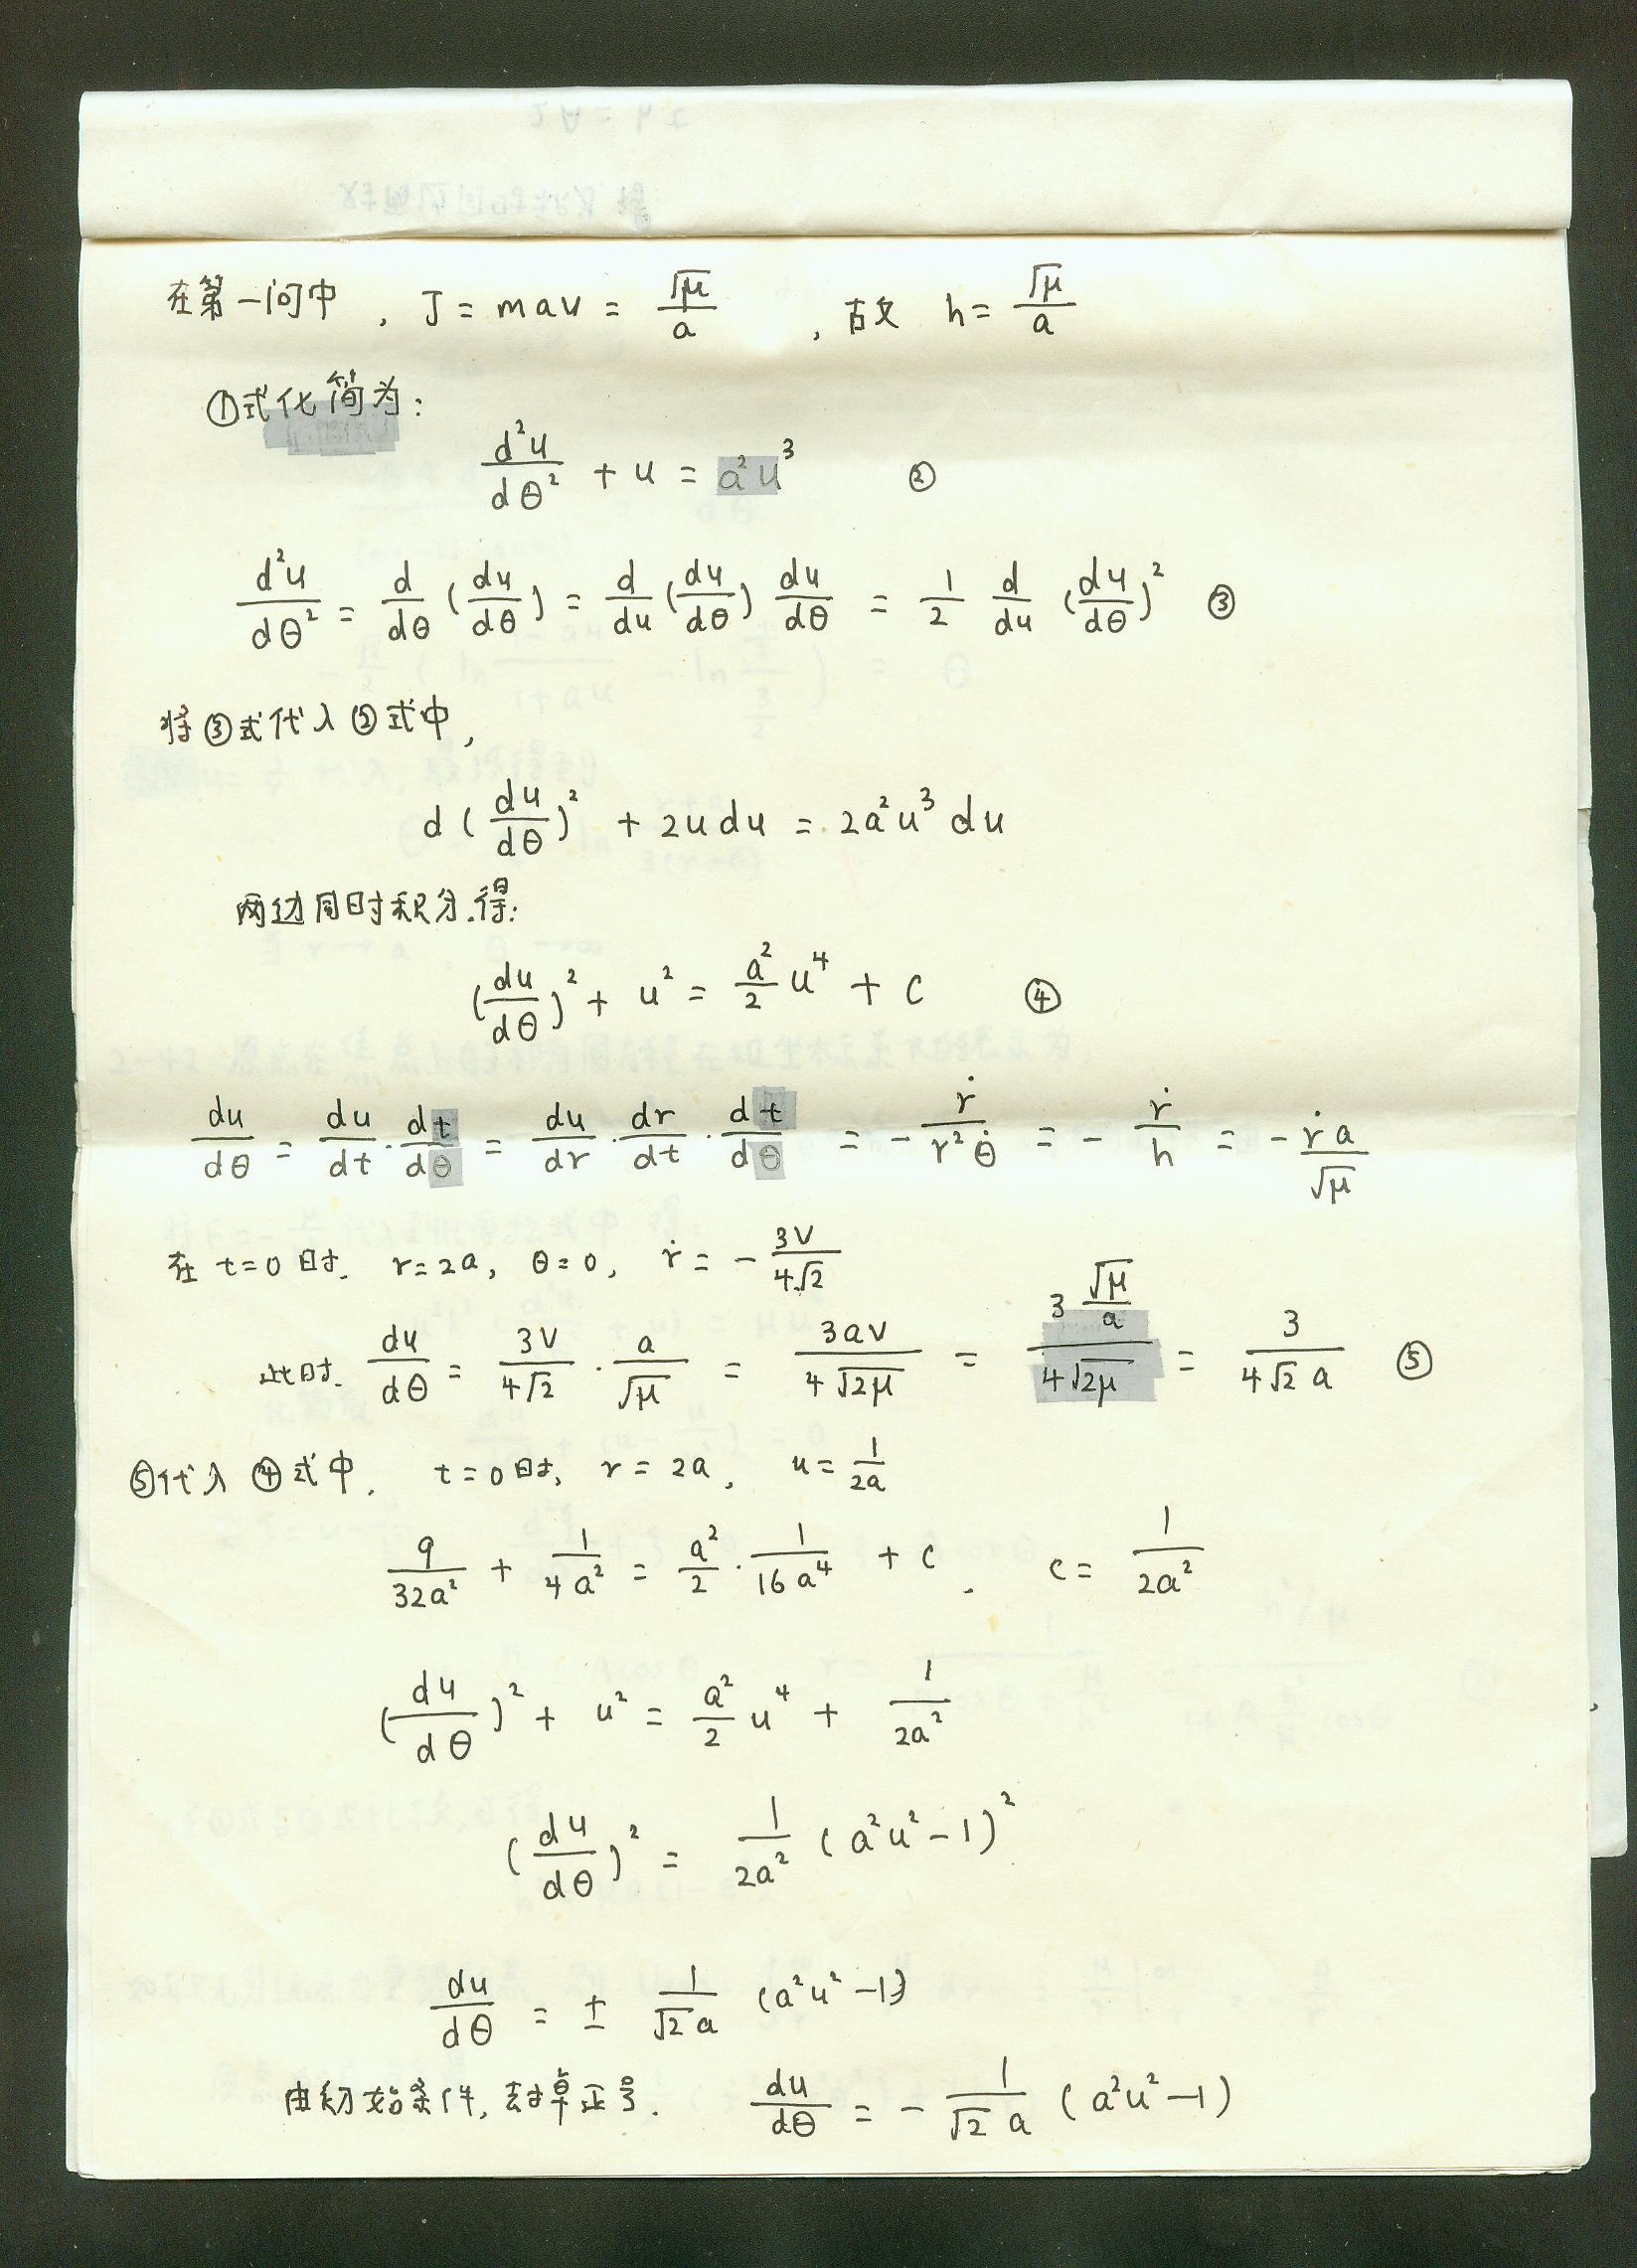 在第一问中, J = mav = √μ/a , 故 h = √μ/a
①式化简为:
d²u/dθ² + u = a²u³ ②
d²u/dθ² = d/dθ (du/dθ) = d/du (du/dθ) du/dθ = 1/2 d/du (du/dθ)² ③
将③式代入②式中,
d(du/dθ)² + 2udu = 2a²u³du
两边同时积分.得:
(du/dθ)² + u² = a²/2 u⁴ + c ④
du/dθ = du/dt · dt/dθ = du/dr · dr/dt · dt/dθ = - ṙ/r²θ̇ = - ṙ/h = - ṙa/√μ
在 t=0时. r=2a, θ=0, ṙ = - 3V/4√2
此时. du/dθ = 3V/4√2 · a/√μ = 3aV/4√2μ = 3 √μ/a / 4√2μ = 3/4√2 a ⑤
⑤代入④式中. t=0时, r=2a, u=1/2a
9/32a² + 1/4a² = a²/2 · 1/16a⁴ + c . c = 1/2a²
(du/dθ)² + u² = a²/2 u⁴ + 1/2a²
(du/dθ)² = 1/2a² (a²u²-1)²
du/dθ = ± 1/√2 a (a²u²-1)
由初始条件, 去掉正号. du/dθ = - 1/√2 a (a²u²-1)